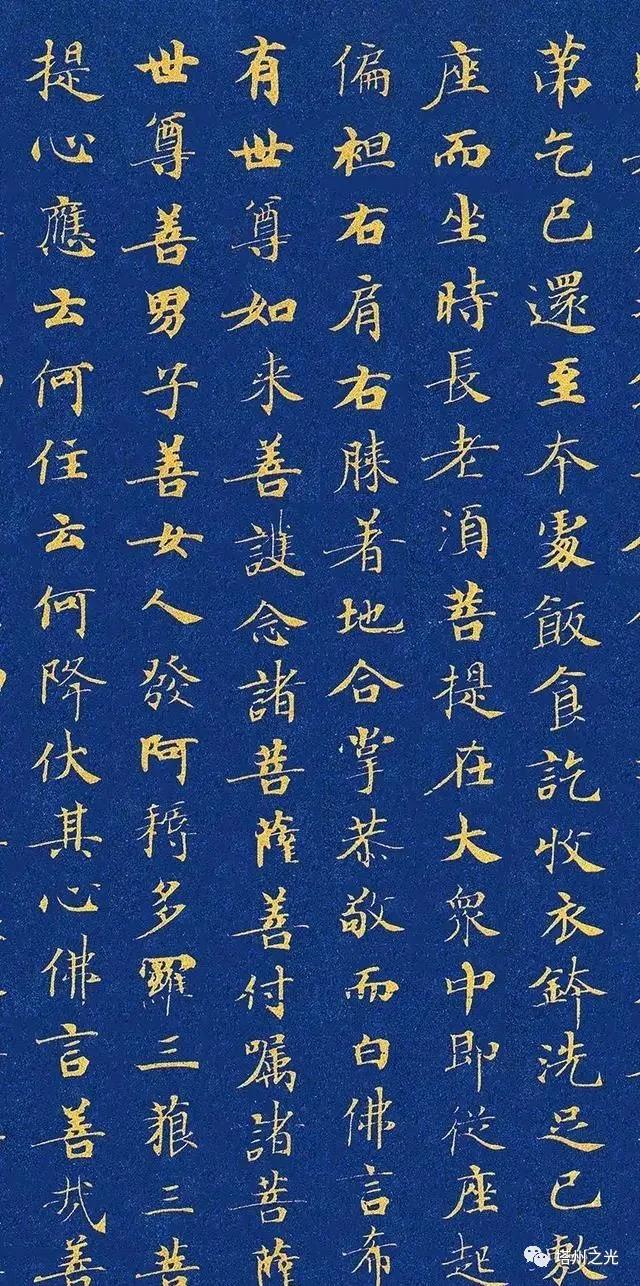 苐乞已還至夲處飯食訖收衣鉢洗足已敷
座而坐時長老湏菩提在大衆中即從座起
偏袒右肩右膝着地合掌恭敬而白佛言希
有世尊如来善護念諸菩薩善付嘱諸菩薩
世尊善男子善女人發阿耨多羅三藐三菩
提心應云何住云何降伏其心佛言善哉善
塔州之光